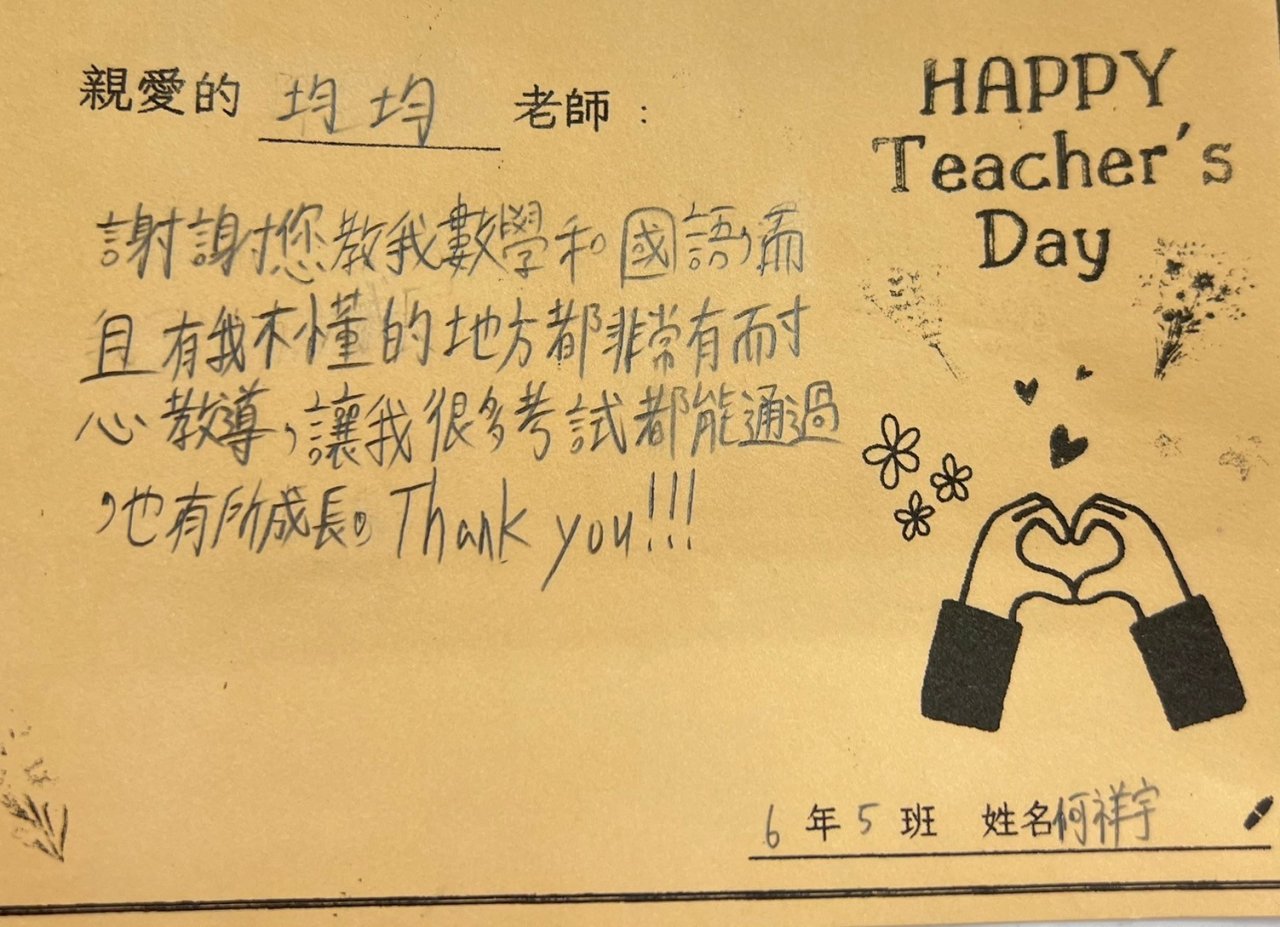 親愛的 均均 老師：
HAPPY
Teacher's
Day
謝謝您教我數學和國語，而
且有我不懂的地方都非常有耐
心教導，讓我很多考試都能通過
，也有所成長。Thank you!!!
6 年 5 班 姓名何祥宇